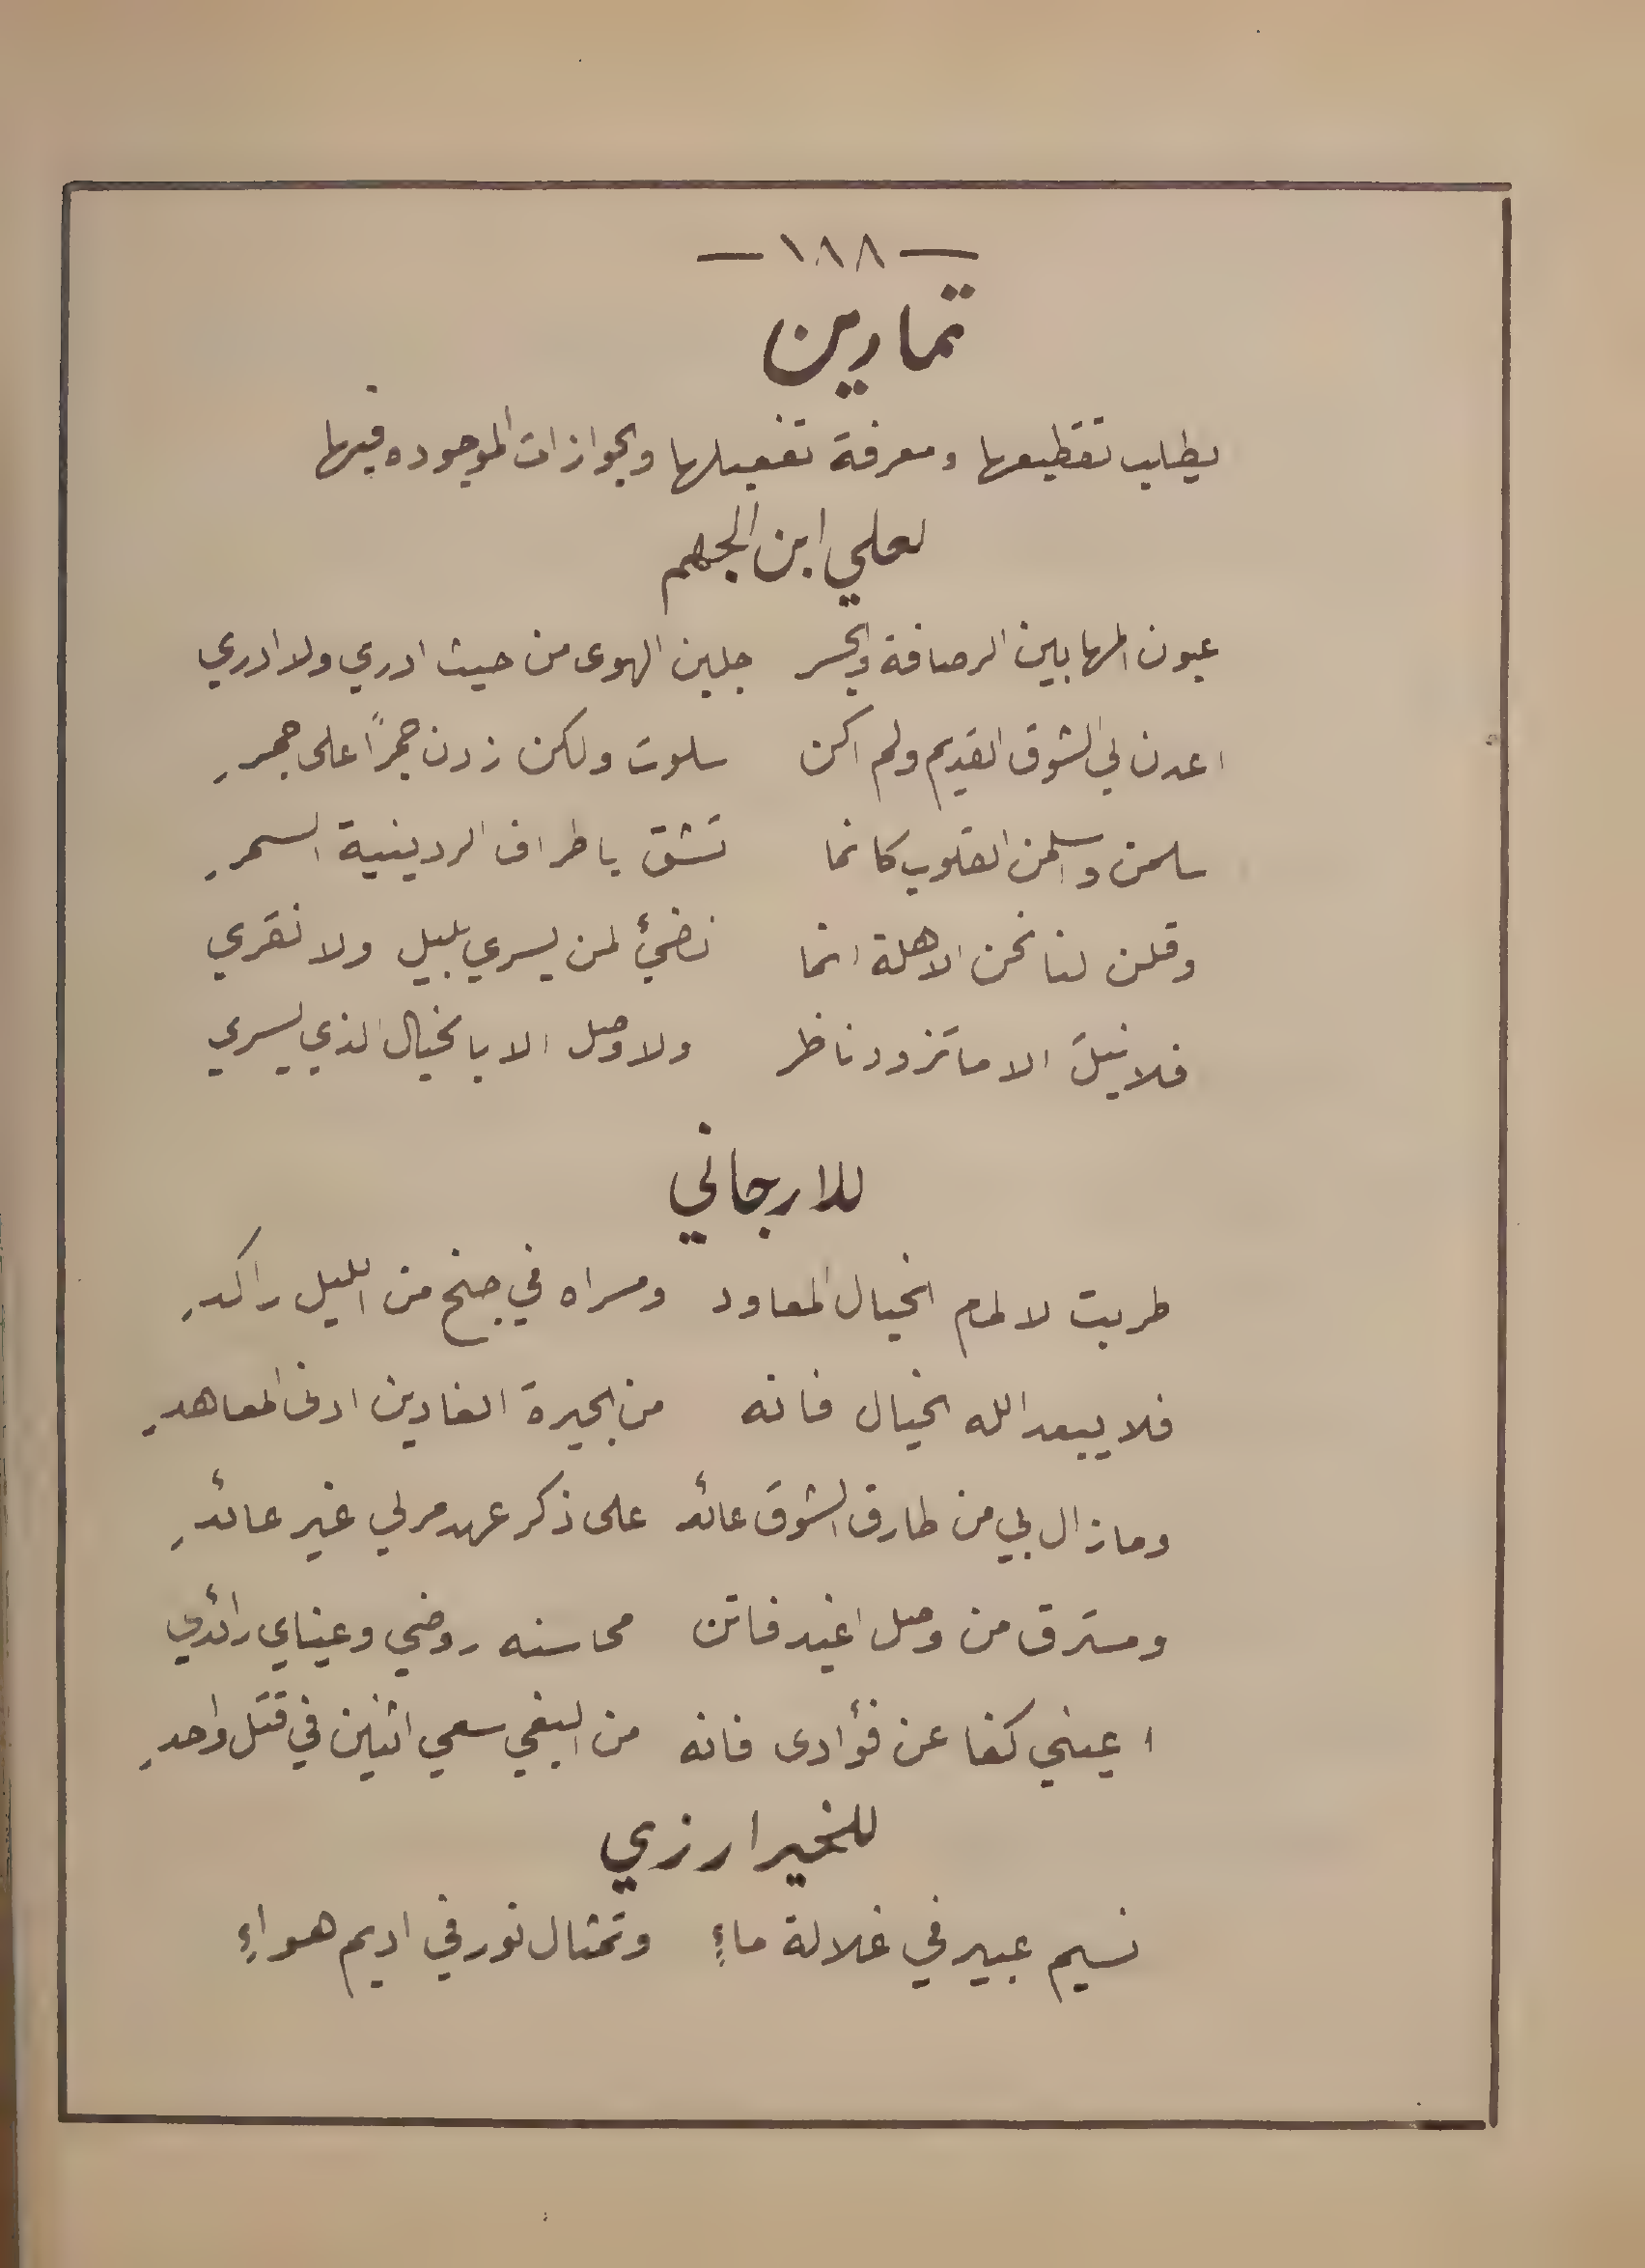 — ١٨٨ —
تمارين
يطلب تقطيعها ومعرفة تفعيلها والجوازات الموجوده فيها
لعلي ابن الجهم
عيون المها بين الرصافة والجسر جلبن الهوى من حيث ادري ولا ادري
اعدن لي الشوق القديم ولم اكن سلوت ولكن زدن جمراً على جمرِ
سلمن واسلمن القلوب كانما تشق باطراف الردينية السمرِ
وقلن لنا نحن الاهلة انما نضئ لمن يسري بليل ولا نقري
فلا نيل الا ما تزود ناظر ولا وصل الا بالخيال الذي يسري
للارجاني
طربت لالمام الخيال المعاود ومسراه في جنح من الليل راكدِ
فلا يبعد الله الخيال فانه من الجيرة الغادين ادنى المعاهدِ
وما زال بي من طارق الشوق عائد على ذكر عهد مر لي غير عائدِ
ومسترق من وصل اغيد فاتن محاسنه روضي وعيناي رائدي
اعيني كفا عن فؤادى فانه من البغي سعي اثنين في قتل واحدِ
للخبرارزي
نسيم عبير في غلالة ماءٍ وتمثال نور في اديم هواءِ